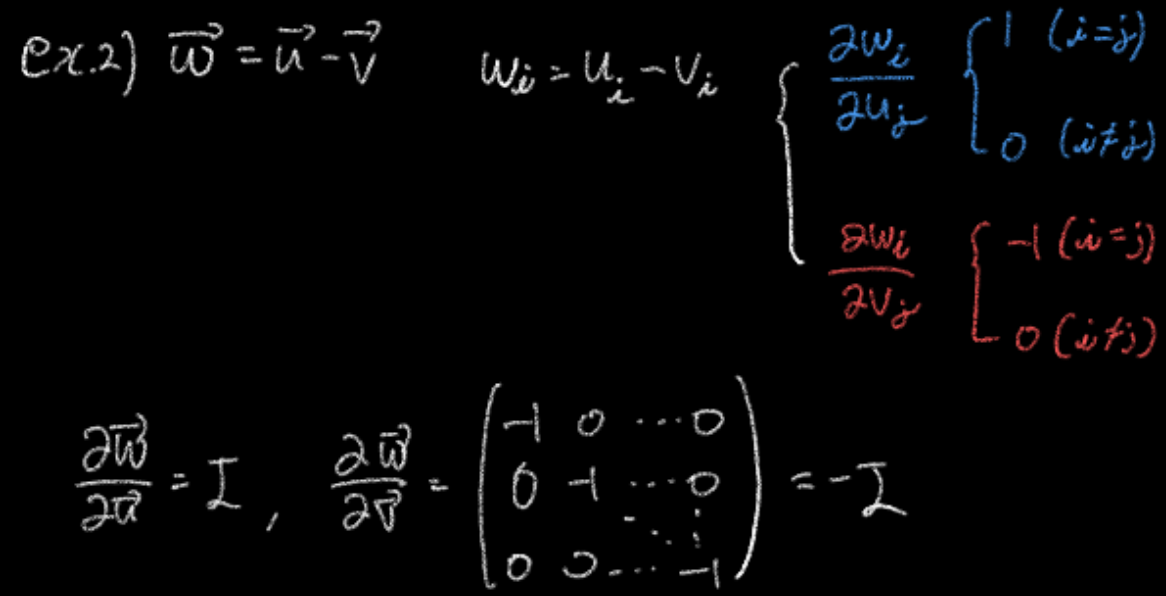 ex.2) w⃗ = u⃗ - v⃗    wᵢ = uᵢ - vᵢ { ∂wᵢ/∂uⱼ { 1 (i=j)
0 (i≠j)
∂wᵢ/∂vⱼ { -1 (i=j)
0 (i≠j)
∂w⃗/∂u⃗ = I , ∂w⃗/∂v⃗ = ( -1 0 ⋯ 0
0 -1 ⋯ 0
⋱ ⋮
0 0 ⋯ -1 ) = -I